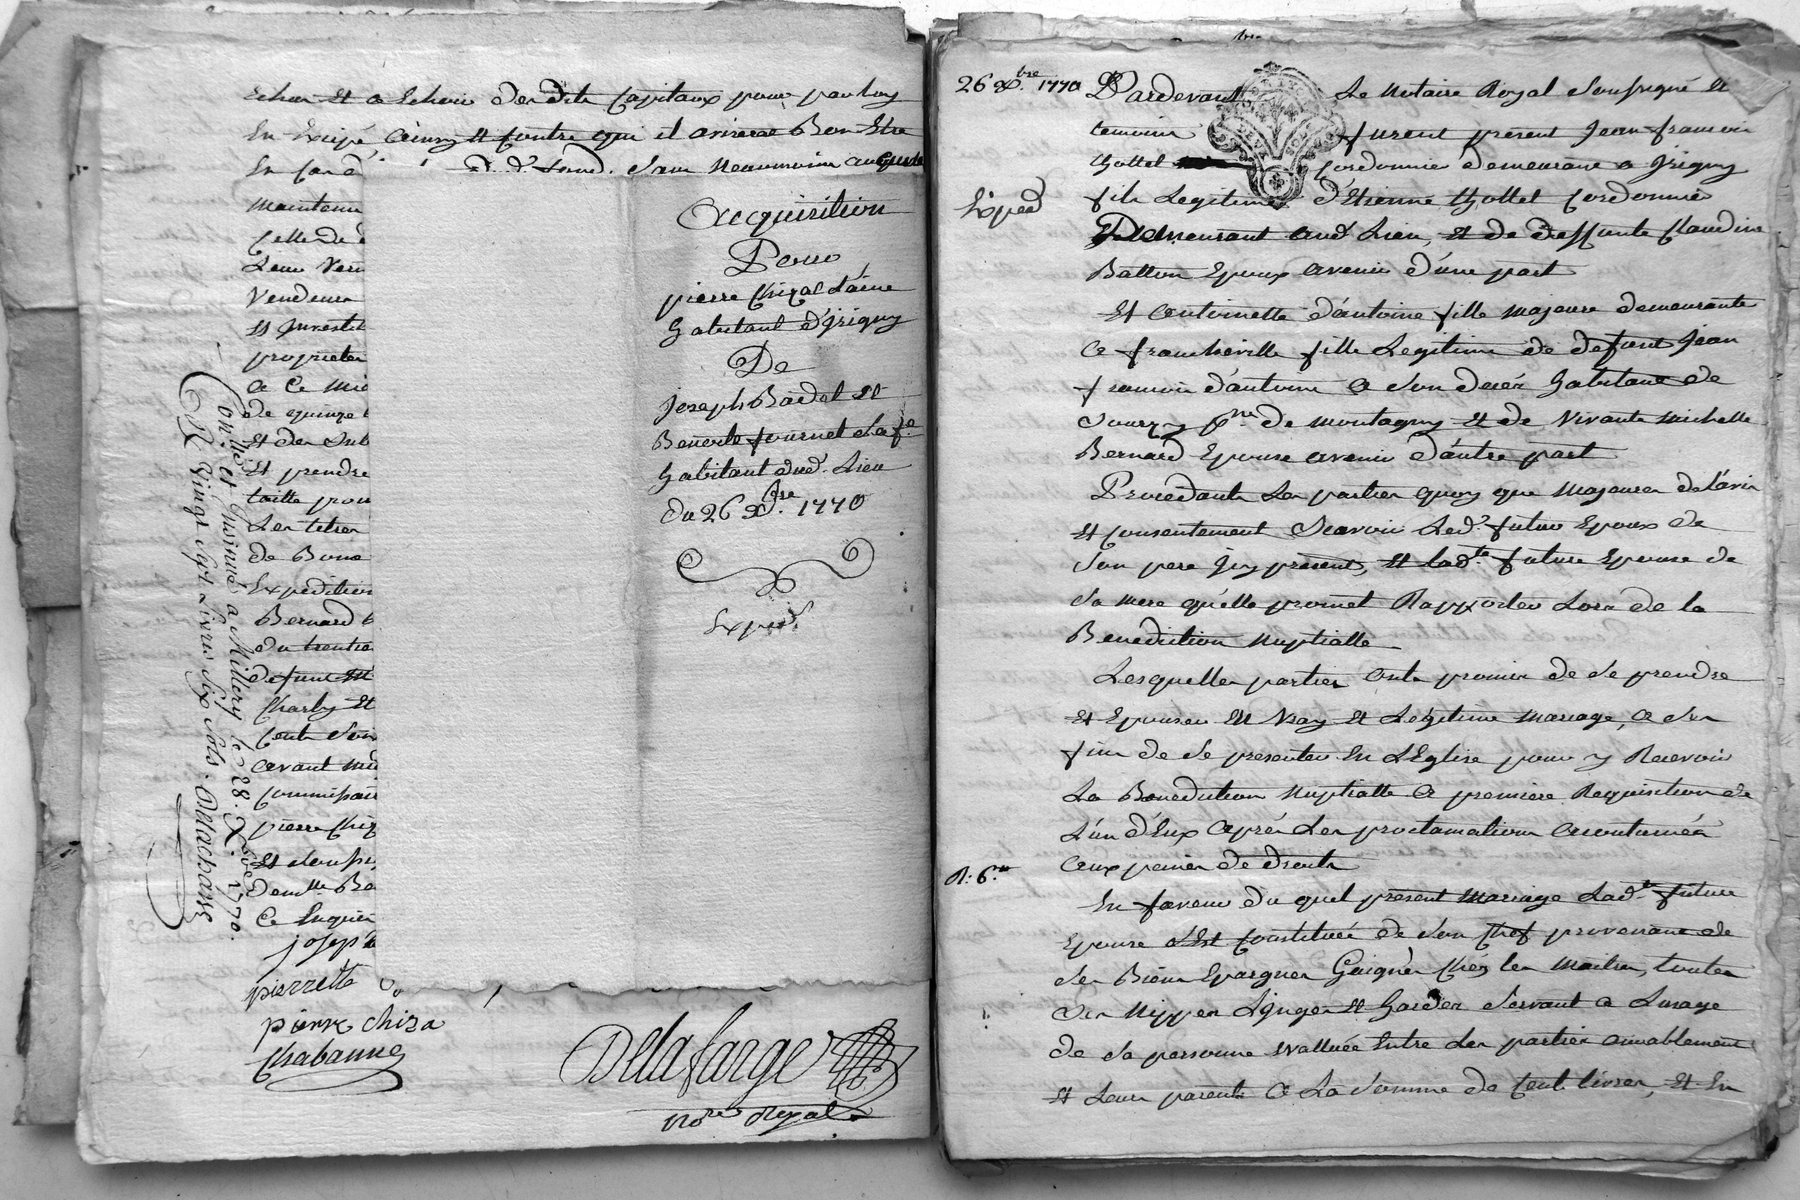 Echue Et a Echoir des dits Capitaux pour par luy
En Exiger ainsy Et contre qui il avisera Bon Etre
En Cas d
Maintenue
Celle de d
Leur Ven
Vendeurs
Et Investit
proprietes
a Ce mid
de quinze
Et des Inte
Et prendre
taille pour
Les titres
de Bonne
Expedition
Bernard
du trentie
defunt Me
Charly Et
Cents
avant mid
Commissaire
pierre Chiz
Et
Ce Enquier
joseph
pierrette
pierre chiza
Chabanne
Delafarge
No.re Royal
Con.lé et Insinué a Millery le 28. X.bre 1770.
R Vingt Sept Livres Six Sols. Delachana
Acquisition
Pour
pierre Chizal L'aine
habitant d'Irigny
De
Joseph Badel Et
Benoite fournel sa f.e
habitant dud. Lieu
du 26 X.bre 1770
Exped.
26 X.bre 1770
Exped
R: 6.
Pardevant Le Notaire Royal Soussigné Et
temoins furent présent Jean francois
thollet Cordonnier demeurant a Irigny
fils Legitime d'Etienne thollet Cordonnier
Demeurant aud. Lieu, Et de deffunte Claudine
Ballon Epoux avenir d'une part
Et antoinette d'antoine fille majeure demeurante
a francheville fille Legitime de defunt Jean
francois d'antoine a son deces habitant de
Sourzy p.sse de montagny Et de vivante michelle
Bernard Epouse avenir d'autre part
Procedants Les parties quoy que majeures de l'avis
Et Consentement Scavoir Led. futur Epoux de
son pere Icy présent, Et lad.te future Epouse de
sa mere qu'elle promet Rapporter Lors de la
Benediction nuptialle
Lesquelles parties ont promis de se prendre
Et Epouser En vray Et Légitime mariage, a ces
fins de se presenter En L'Eglise pour y Recevoir
La Benediction nuptialle a premiere Requisition de
L'un d'Eux aprés Les proclamations acoutumées
aux peines de droits
En faveur du quel present mariage Lad.te future
Epouse s'Est Constituée de son Chef provenant de
ses Biens Epargnes Gaignés Chés les maitres, toutes
ses nippes Linges Et hardes Servant a Lusage
de sa personne Evalluée Entre Les parties amiablement
Et Leurs parents a La Somme de Cent livres, Et En